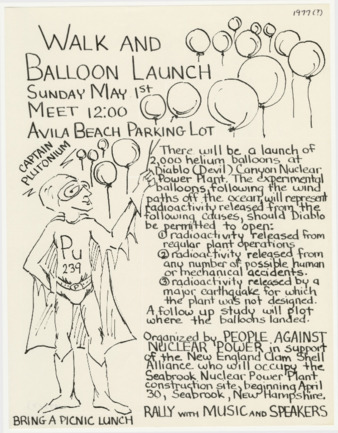 1977(?)
WALK AND
BALLOON LAUNCH
SUNDAY MAY 1st
MEET 12:00
AVILA BEACH PARKING LOT
CAPTAIN
PLUTONIUM
Pu
239
There will be a launch of
2,000 helium balloons at
Diablo (Devil) Canyon Nuclear
Power Plant. The experimental
balloons, following the wind
paths off the ocean, will represent
radioactivity released from the
following causes, should Diablo
be permitted to open:
① radioactivity released from
regular plant operations
② radioactivity released from
any number of possible human
or mechanical accidents.
③ radioactivity released by a
major earthquake for which
the plant was not designed.
A follow up study will plot
where the balloons landed.
Organized by PEOPLE AGAINST
NUCLEAR POWER in support
of the New England Clam Shell
Alliance who will occupy the
Seabrook Nuclear Power Plant
construction site, beginning April
30, Seabrook, New Hampshire.
BRING A PICNIC LUNCH
RALLY WITH MUSIC AND SPEAKERS